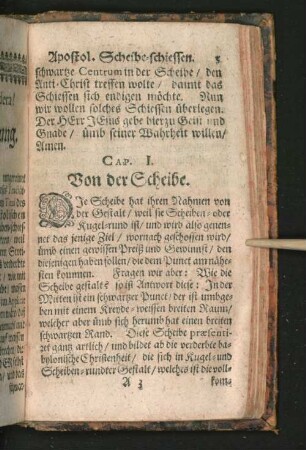 Apostol. Scheibe-schiessen. 5
schwartze Centrum in der Scheibe/ den
Anti-Christ treffen wolte/ damit das
Schiessen sich endigen möchte. Nun
wir wollen solches Schiessen überlegen.
Der HErr JEsus gebe hierzu Geist und
Gnade/ ümb seiner Wahrheit willen/
Amen.
CAP. I.
Von der Scheibe.
DIe Scheibe hat ihren Nahmen von
der Gestalt/ weil sie Scheiben- oder
Kugel-rund ist/ und wird also genen-
net das jenige Ziel/ wornach geschossen wird/
ümb einen gewissen Preiß und Gewinnst/ den
diejenigen haben sollen/ die dem Punct am nähe-
sten kommen. Fragen wir aber: Wie die
Scheibe gestalt? so ist Antwort diese: In der
Mitten ist ein schwartzer Punct/ der ist umbge-
ben mit einem Kreyde-weissen breiten Raum/
welcher aber ümb sich herumb hat einen breiten
schwartzen Rand. Diese Scheibe præsenti-
ret gantz artlich/ und bildet ab die verderbte ba-
bylonische Christenheit/ die sich in Kugel- und
Scheiben-rundter Gestalt/ welches ist die voll-
A 3 kom-